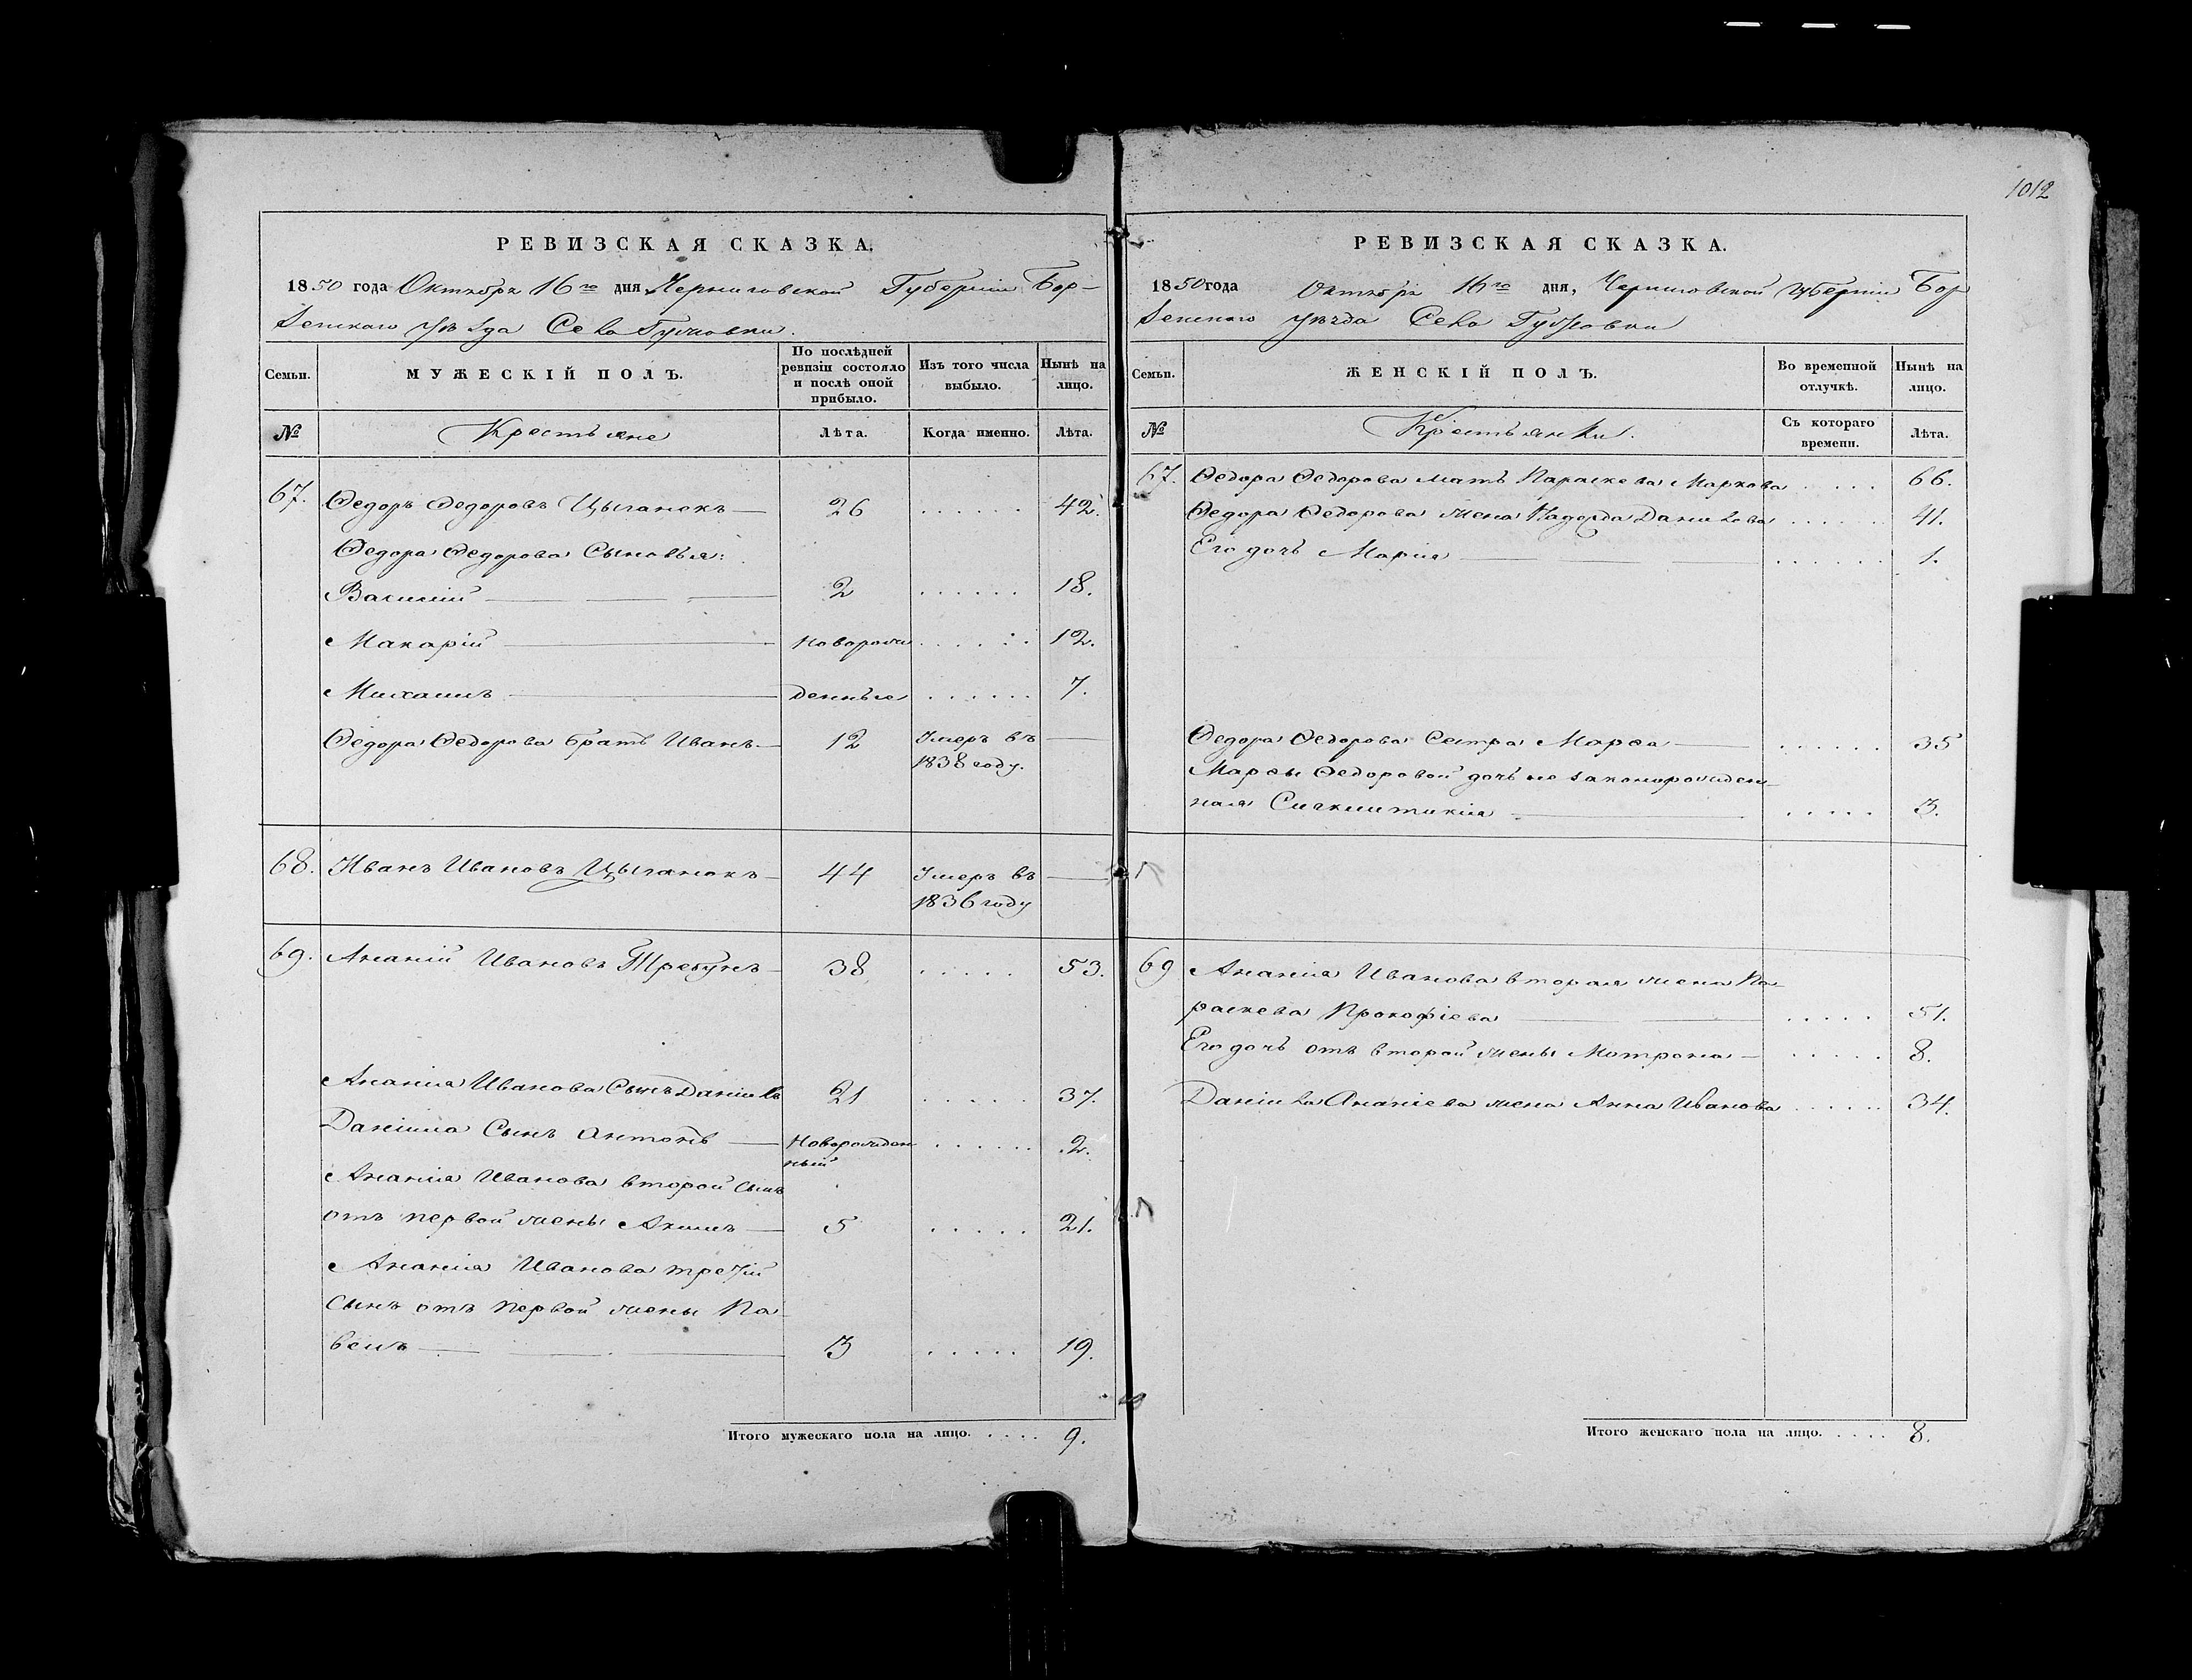 1012
РЕВИЗСКАЯ СКАЗКА.
1850 года Октября 16го дня Черниговской Губернiи Бор-
зенскаго уѣзда Села
Семьи.
МУЖЕСКIЙ ПОЛЪ.
По послѣдней ревизiи состояло и послѣ оной прибыло.
Изъ того числа выбыло.
Нынѣ на лицо.
№
Крестьяне
Лѣта.
Когда именно.
Лѣта.
67. Ѳедоръ Ѳедоровъ Цыганокъ — 26 ...... 42.
Ѳедора Ѳедорова Сыновья:
Василiй — 2 ...... 18.
Макарiй — новорож ...... 12.
Михаилъ — денные ...... 7.
Ѳедора Ѳедорова братъ Иванъ — 12 Умеръ въ —
1838 году.
68. Иванъ Ивановъ Цыганокъ — 44 Умеръ въ —
1836 году
69. Ананiй Ивановъ Требунъ — 38 ..... 53.
Ананiя Иванова Сынъ Данiилъ 21 ..... 37.
Данiила Сынъ Антонъ — Новорожден ...... 2.
ный
Ананiя Иванова второй Сынъ
отъ первой жены Акимъ — 5 ..... 21.
Ананiя Иванова третiй
Сынъ отъ первой жены Па-
велъ — 3 ..... 19.
Итого мужескаго пола на лицо. .... 9.
РЕВИЗСКАЯ СКАЗКА.
1850 года Октября 16го дня, Черниговской Губернiи Бор
зенскаго уѣзда Села
Семьи.
ЖЕНСКIЙ ПОЛЪ.
Во временной отлучкѣ.
Нынѣ на лицо.
№
Крестьянки.
Съ котораго времени.
Лѣта.
67. Ѳедора Ѳедорова мать Параскева Маркова ..... 66.
Ѳедора Ѳедорова жена Надежда Данилова ...... 41.
Его дочь Марiя — ...... 1.
Ѳедора Ѳедорова Сестра Марѳа — ...... 35
Марѳы Ѳедоровой дочь незаконорожден-
ная — ..... 3.
69 Ананiя Иванова вторая жена Па-
раскева Прокофiева — ..... 51.
Его дочь отъ второй жены Мотрона — ..... 8.
Данiила Ананiева жена Анна Иванова ...... 34.
Итого женскаго пола на лицо. .... 8.